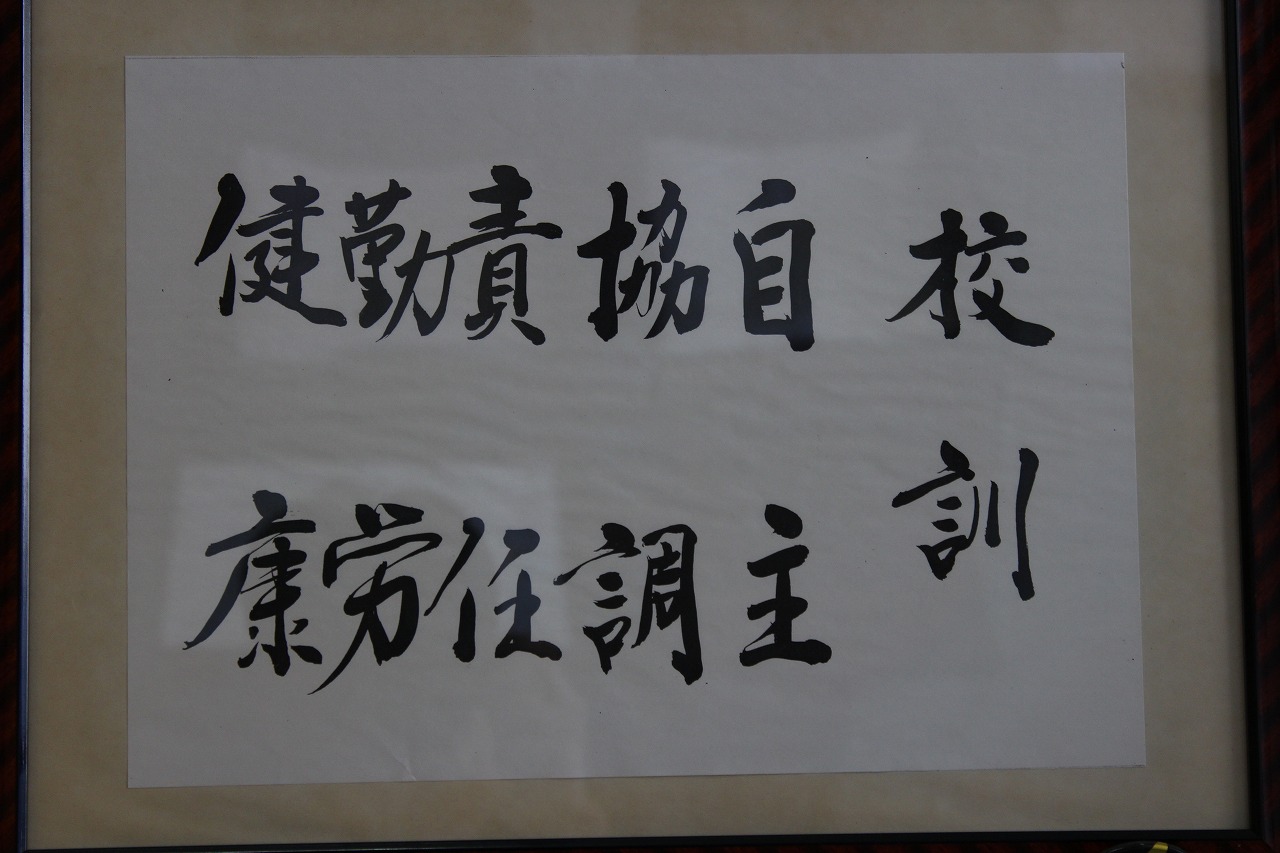 校訓
自主
協調
責任
勤労
健康